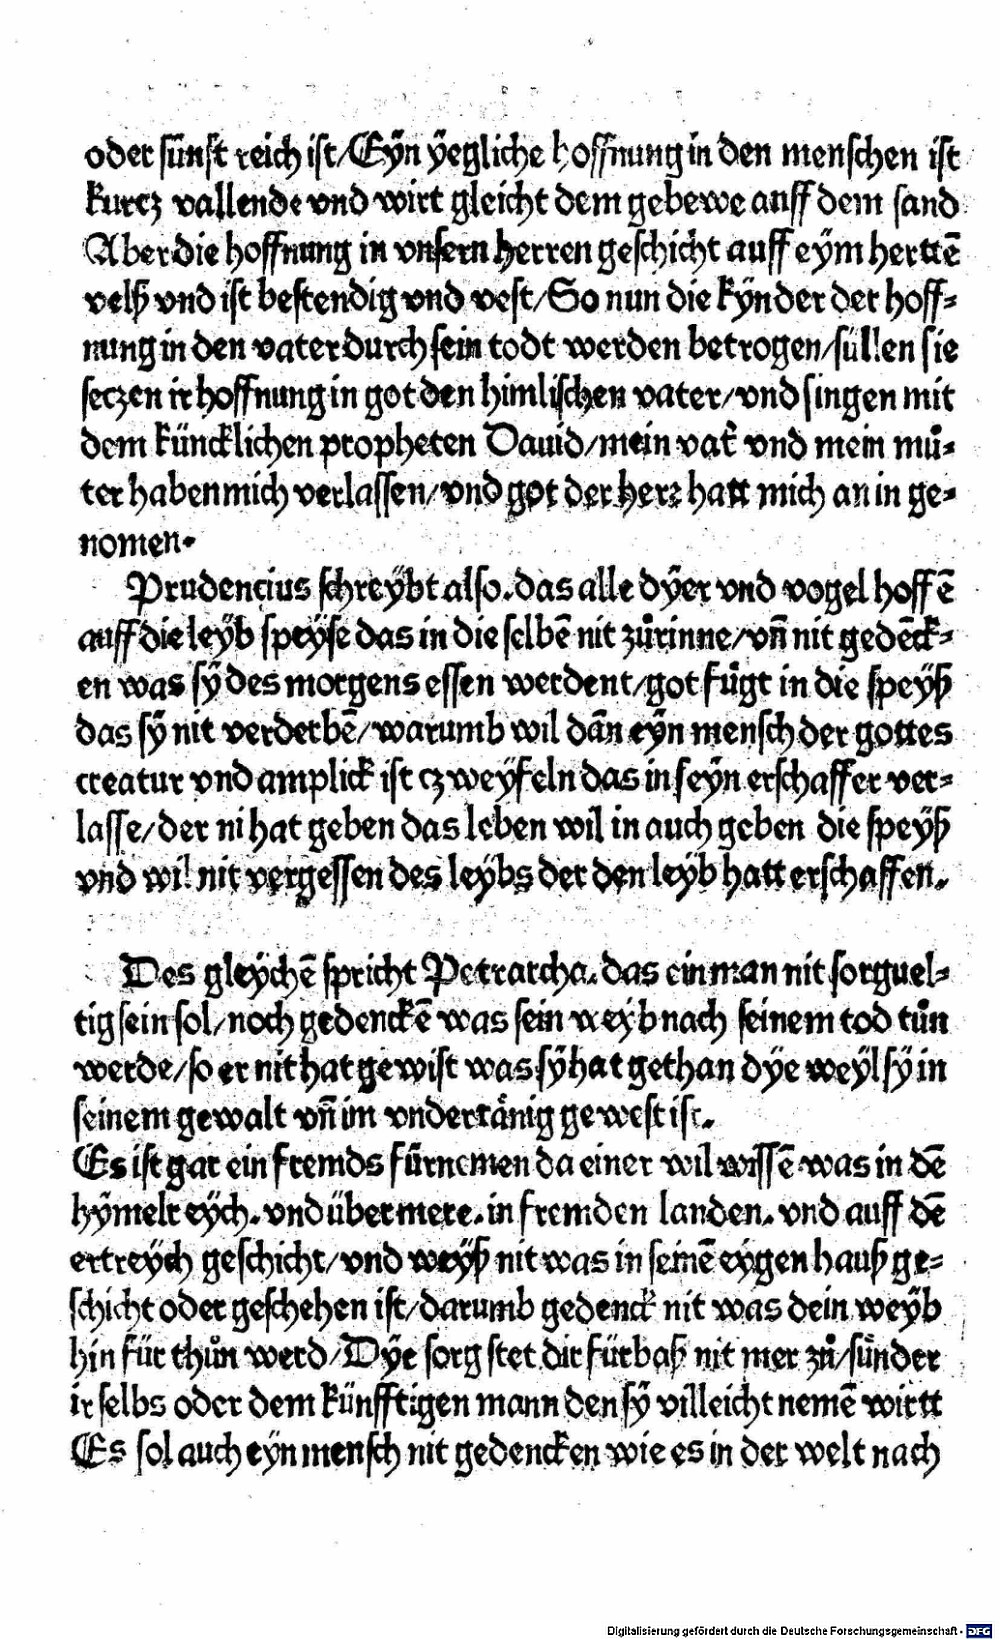 oder sünst reich ist/Eÿn ÿegliche hoffnung in den menschen ist
kurcz vallende vnd wirt gleicht dem gebewe auff dem sand
Aber die hoffnung in vnsern herren geschicht auff eÿm herttē
velß vnd ist bestendig vnd vest/So nun die kÿnder der hoff⸗
nung in den vater durch sein todt werden betrogen/süllen sie
seczen ir hoffnung in got den himlischen vater/vnd singen mit
dem küncklichen propheten Dauid/mein vat̄ vnd mein mů⸗
ter haben mich verlassen/vnd got der herꝛ hatt mich an in ge⸗
nomen.
Prudencius schreÿbt also.das alle dÿer vnd vogel hoffē
auff die leÿb speÿse das in die selbē nit zůrinne/vn̄ nit gedēck⸗
en was sÿ des morgens essen werdent/got fůgt in die speÿß
das sÿ nit verderbē/warumb wil dān eÿn mensch der gottes
creatur vnd amplick ist czweÿfeln das in seÿn erschaffer ver⸗
lasse/der ni hat geben das leben wil in auch geben die speÿß
vnd wil nit vergessen des leÿbs der den leÿb hatt erschaffen.
Des gleÿchē spricht Petrarcha.das ein man nit sorguel⸗
tig sein sol/noch gedenckē was sein weÿb nach seinem tod tůn
werde/so er nit hat gewist was sÿ hat gethan dÿe weÿl sÿ in
seinem gewalt vn̄ im vndertånig gewest ist.
Es ist gar ein fremds fürnemen da einer wil wissē was in dē
hÿmelreÿch.vnd über mere.in fremden landen.vnd auff dē
ertreÿch geschicht/vnd weÿß nit was in seinē eÿgen hauß ge⸗
schicht oder geschehen ist/darumb gedenck nit was dein weÿb
hin für thůn werd/Dÿe sorg stet dir fürbaß nit mer zů/sůnder
ir selbs oder dem künfftigen mann den sÿ villeicht nemē wirtt
Es sol auch eÿn mensch nit gedencken wie es in der welt nach
Digitalisierung gefördert durch die Deutsche Forschungsgemeinschaft - DFG